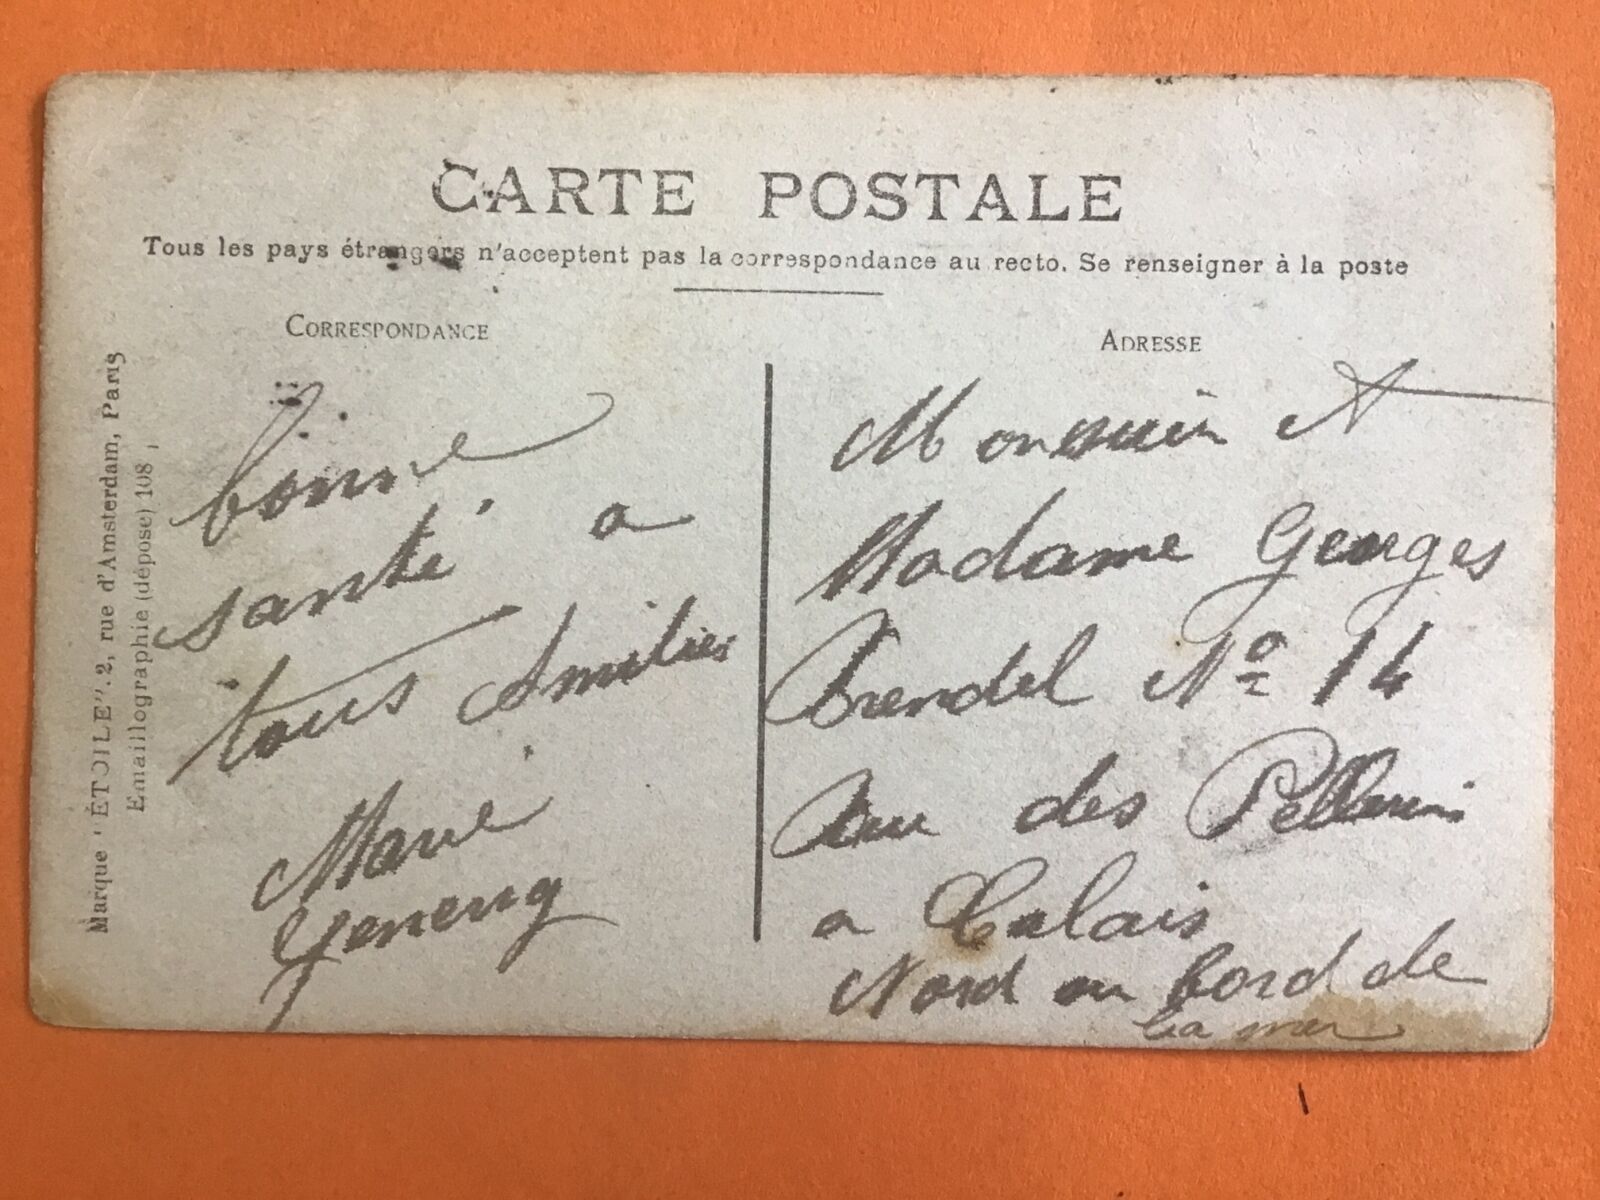 CARTE POSTALE
Tous les pays étrangers n'acceptent pas la correspondance au recto. Se renseigner à la poste
CORRESPONDANCE
bonne
santé a
tous Amitiés
Marie
ADRESSE
Monsieur et
Madame Georges
Nº 14
Rue des
a Calais
Nord au bord de
La mer
Marque "ÉTOILE". 2, rue d'Amsterdam, Paris
Emaillographie (déposé) 108